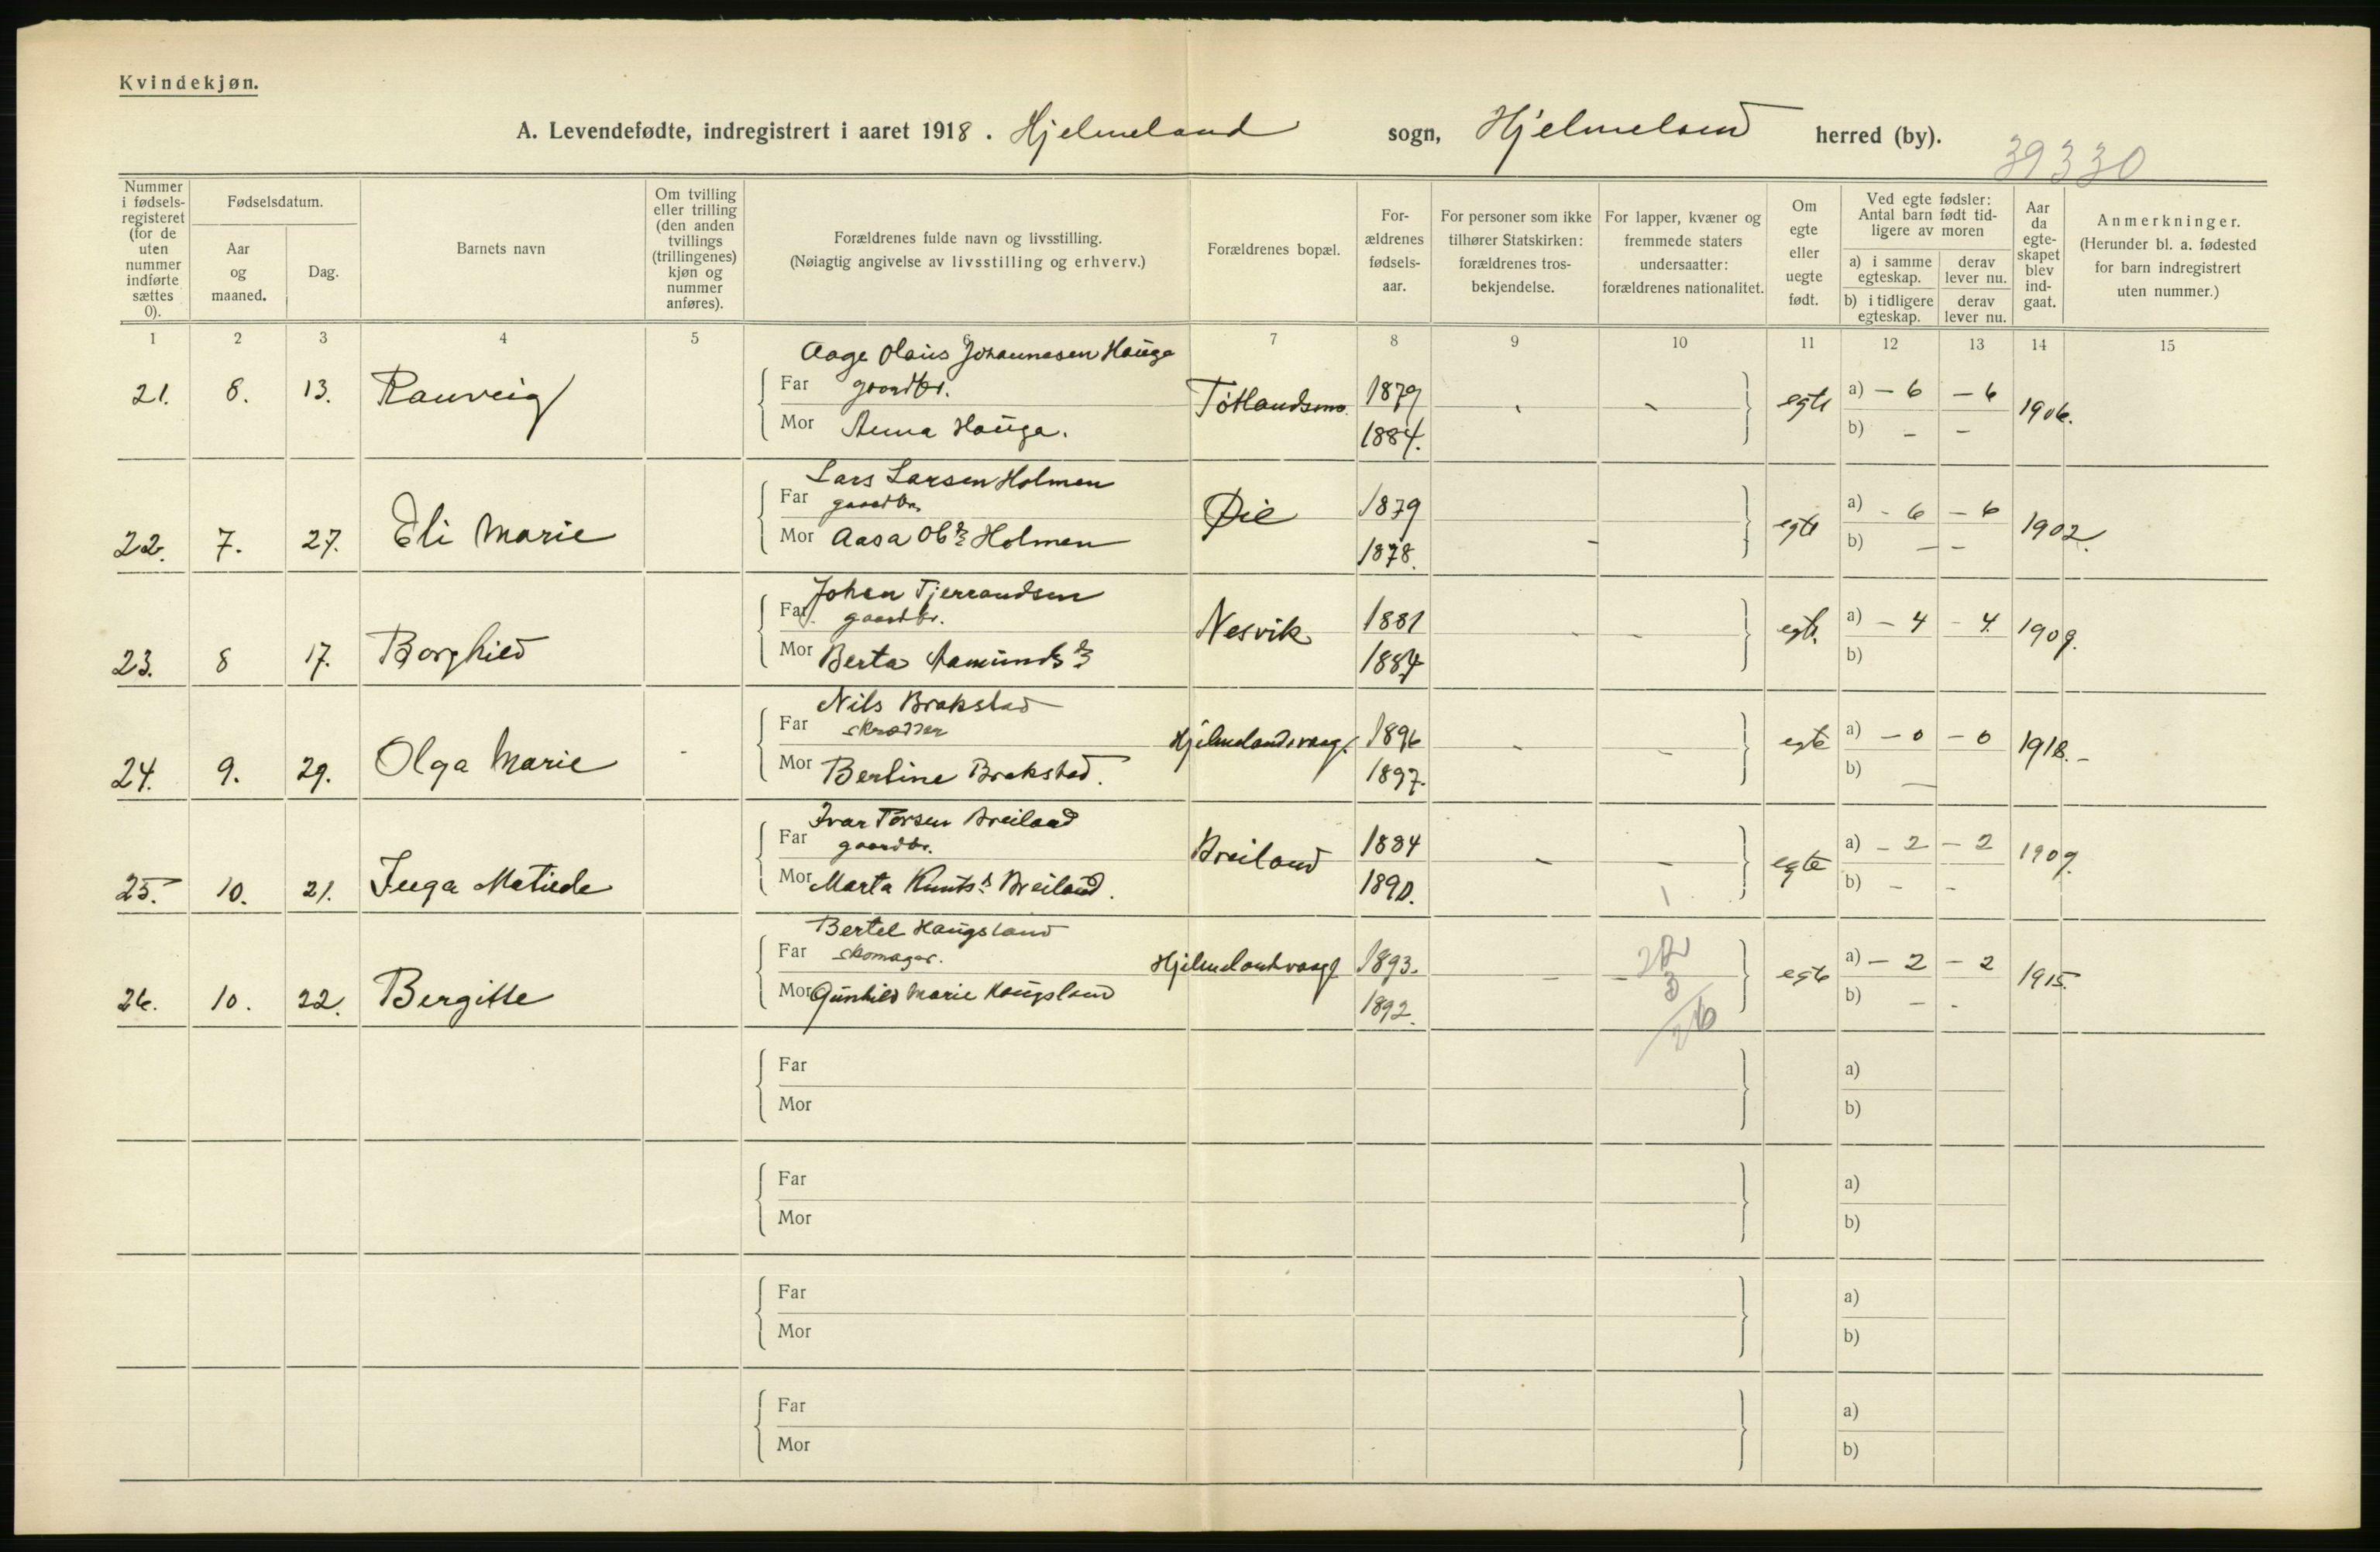 Kvindekjøn.
A. Levendefødte, indregistrert i aaret 1918. Hjelmeland sogn, Hjelmeland herred (by).
39330
Nummer i fødselsregisteret (for de uten nummer indførte sættes 0).
Fødselsdatum.
Aar og maaned.
Dag.
Barnets navn
Om tvilling eller trilling (den anden tvillings (trillingenes) kjøn og nummer anføres).
Forældrenes fulde navn og livsstilling.
(Nøiagtig angivelse av livsstilling og erhverv.)
Forældrenes bopæl.
Forældrenes fødselsaar.
For personer som ikke tilhører Statskirken: forældrenes trosbekjendelse.
For lapper, kvæner og fremmede staters undersaatter: forældrenes nationalitet.
Om egte eller uegte født.
Ved egte fødsler: Antal barn født tidligere av moren
a) i samme egteskap.
derav lever nu.
b) i tidligere egteskap.
derav lever nu.
Aar da egteskapet blev indgaat.
Anmerkninger.
(Herunder bl. a. fødested for barn indregistrert uten nummer.)
1 2 3 4 5 6 7 8 9 10 11 12 13 14 15
Aage Olaus Johannesen Hauga
21. 8. 13. Rauveig Far gaardbr. 1879 - - egte a) - 6 - 6 1906.
Mor Anna Hauga. 1884. b) - -
Lars Larsen Holmen
22. 7. 27. Eli Marie Far gaardbr. Øie 1879 egte a) - 6 - 6 1902.
Mor Aasa Holmen 1878. - b) - -
Johan Tjerrandsen
23. 8 17. Borghild Far gaardbr. Nesvik 1881 - - egte a) - 4 - 4. 1909.
Mor Berta 1884 b)
Nils Brakstad
24. 9. 29. Olga Marie - Far skrædder Hjelmelandsvaag. 1896 - - egte a) - 0 - 0 1918. -
Mor Berline Brakstad. 1897. b) -
Ivar Torsen Breiland
25. 10. 21. Inga Matilde Far gaardbr. Breiland 1884 - - egte a) - 2 - 2 1909.
Mor Marta Knutsd Breiland. 1890. 1 b) - -
Bertel Haugsland
26. 10. 22. Bergitte Far skomager. Hjelmelandvaag 1893. - - 22 egte a) - 2 - 2 1915.
Mor Gunhild Marie Haugsland 1892. 3 b) - -
26
Far a)
Mor b)
Far a)
Mor b)
Far a)
Mor b)
Far a)
Mor b)